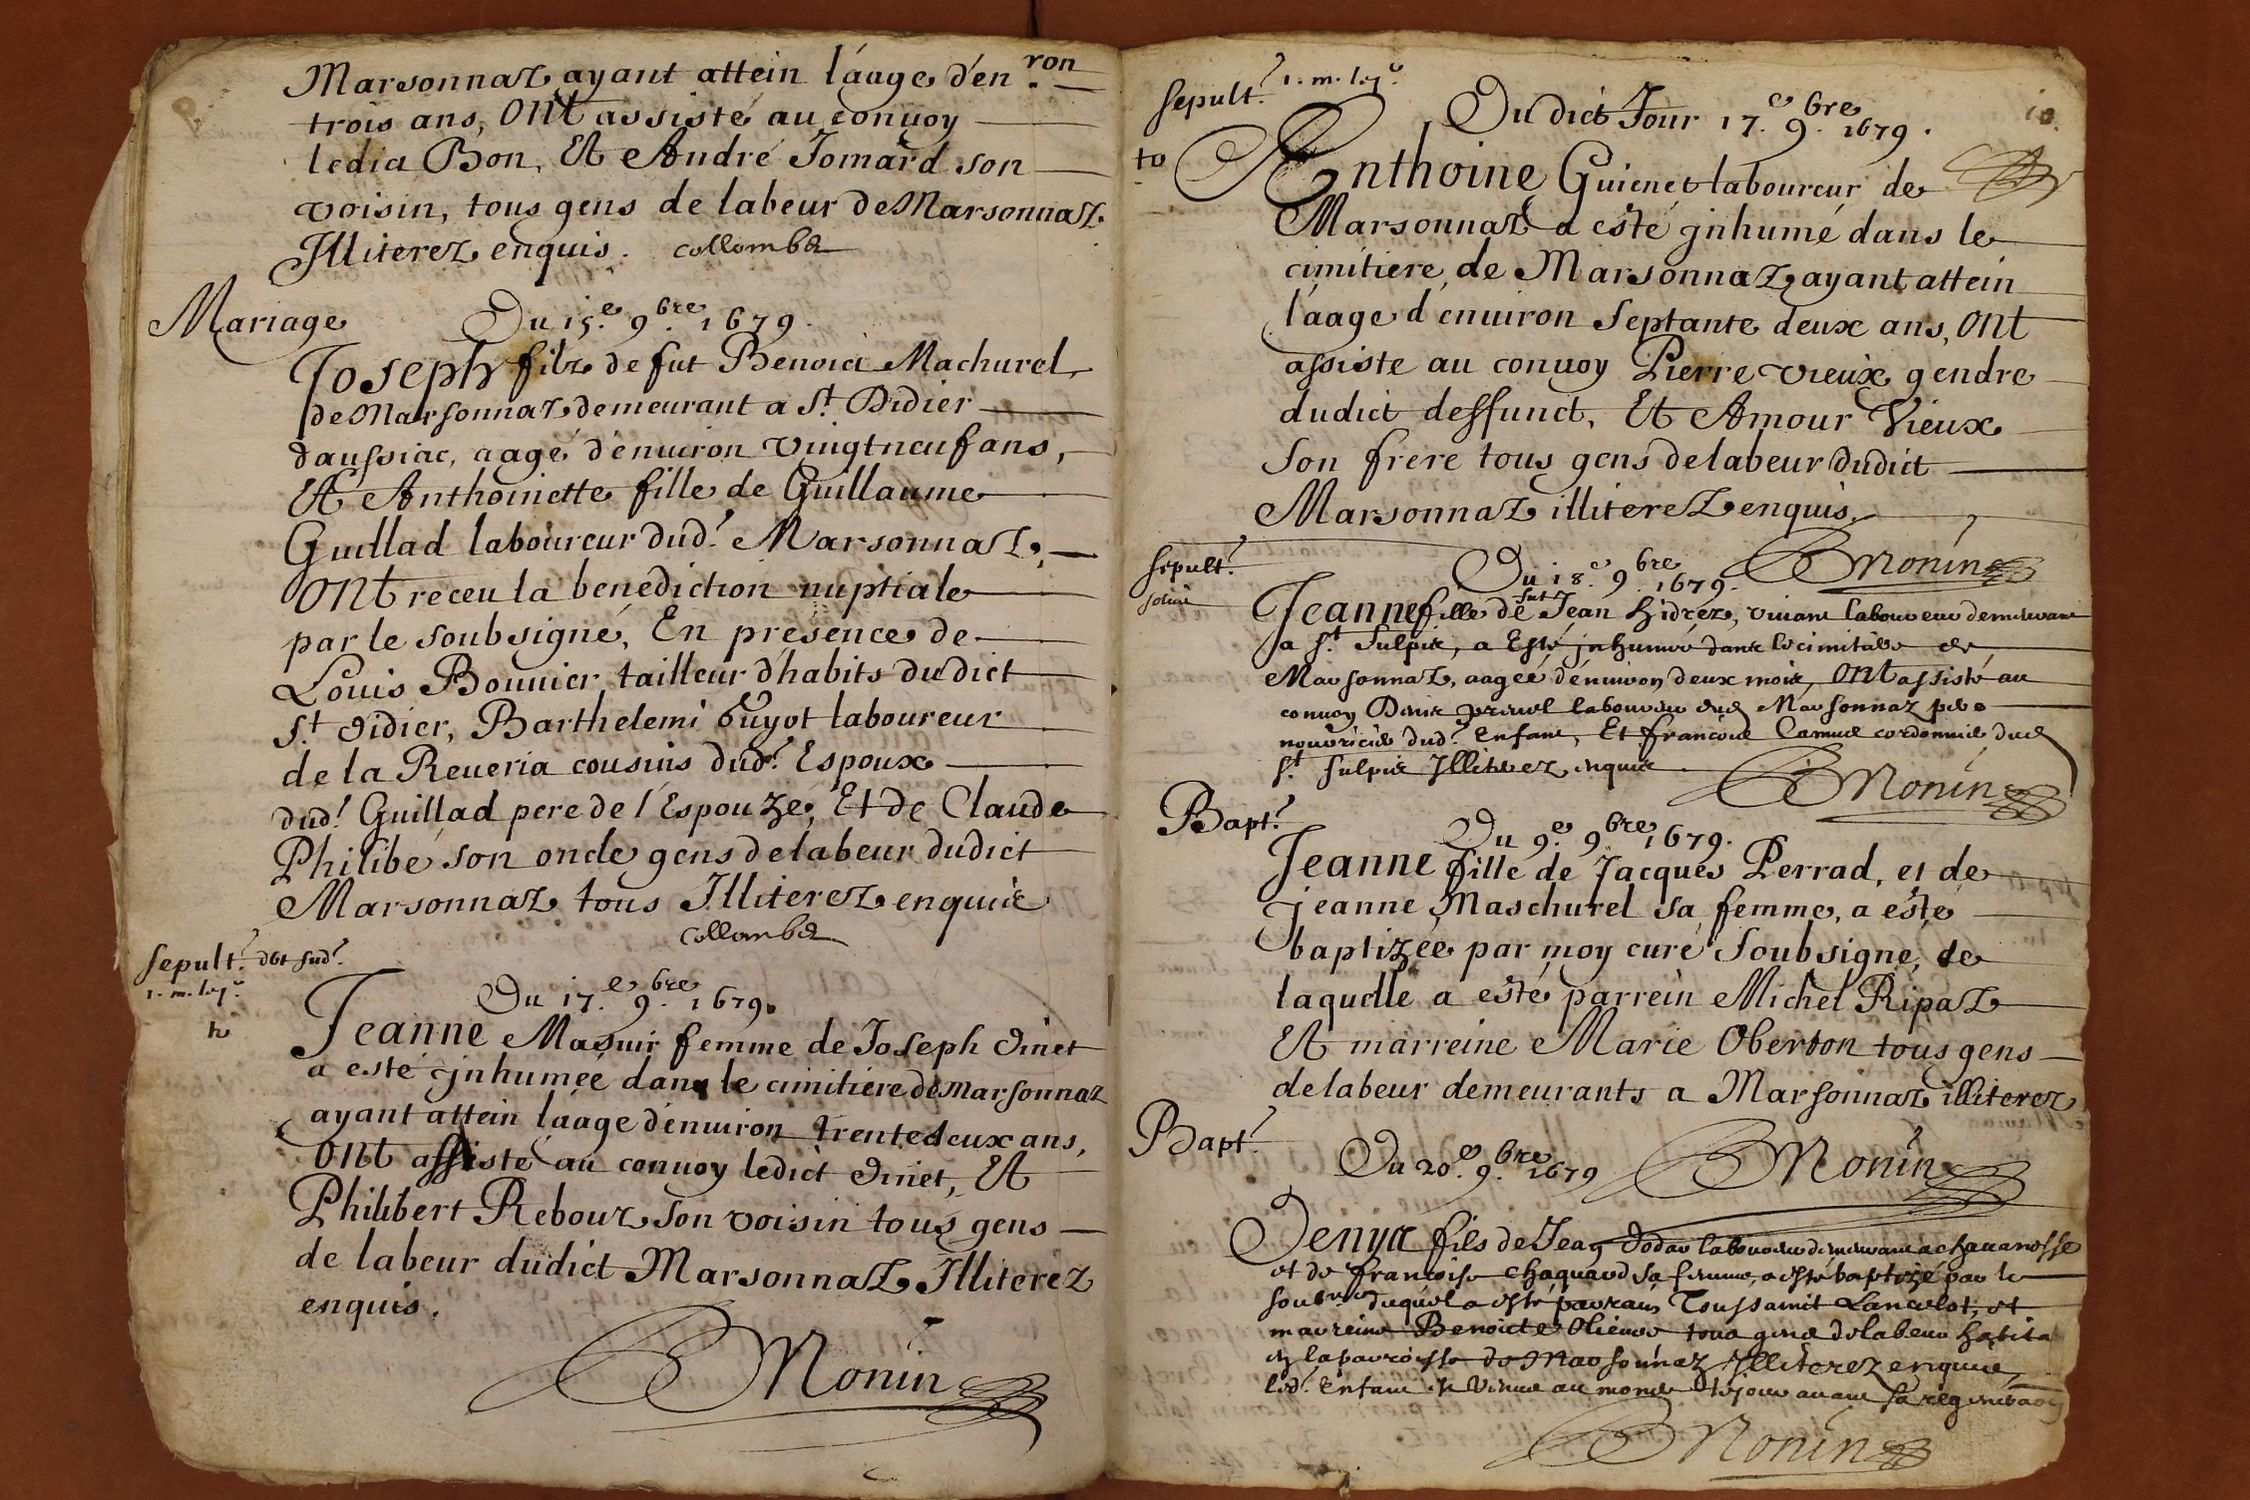 Marsonnaz ayant attein l'aage d'en.ron
trois ans, Ont assisté au conuoy
ledict Bon, Et André Jomard son
voisin, tous gens de labeur de Marsonnaz
Illiterez enquis. collombet
Mariage
Du 15.e 9.bre 1679.
Joseph filz de fut Benoict Machurel
de Marsonnaz demeurant a St. Didier
daussiac, aagé d'enuiron vingtneuf ans,
Et Anthoinette fille de Guillaume
Guillad laboureur dud.t Marsonnaz,
Ont receu la benediction nuptiale
par le soubsigné, En presence de
Louis Bouuier tailleur d'habits dudict
St. didier, Barthelemi Guyot laboureur
de la Reueria cousins dud.t Espoux
dud.t Guillad pere de l'Espouze, Et de Claude
Philibé son oncle gens de labeur dudict
Marsonnaz tous Illiterez enquis
collombet
Sepult.e
Du 17.e 9.bre 1679.
Jeanne Masuir femme de Joseph dinet
a esté jnhumée dans le cimitiere de Marsonnaz
ayant attein l'aage d'enuiron trente deux ans,
Ont assisté au conuoy ledict dinet, Et
Philibert Rebour son voisin tous gens
de labeur dudict Marsonnaz Illiterez
enquis.
Monin
Sepult.e
10.
Du dict Jour 17.e 9.bre 1679.
Anthoine Guienet laboureur de
Marsonnaz a esté jnhumé dans le
cimitiere de Marsonnaz ayant attein
l'aage d'enuiron septante deux ans, Ont
assiste au conuoy Pierre vieux gendre
dudict deffunct, Et Amour Vieux
son frere tous gens de labeur dudict
Marsonnaz illiterez enquis.
Monin
Sepult.e
Du 18.e 9.bre 1679.
Jeanne fille de fut Jean hidrez, viuant laboureur demeurant
a St. Sulpis, a Esté jnhumée dans le cimitiere de
Marsonnaz, aagée d'enuiron deux mois, Ont assisté au
conuoy Denis laboureur dud Marsonnaz pere
nouricier dud.t Enfant, Et francois Camus cordonnier dud
St. Sulpis Illiterez enquis
Monin
Bapt.e
Du 9.e 9.bre 1679.
Jeanne fille de Jacques Perrad, et de
jeanne Maschurel sa femme, a esté
baptizée par moy curé soubsigné, de
laquelle a esté parrein Michel Ripaz
Et marreine Marie Oberton tous gens
de labeur demeurants a Marsonnaz illiterez
Bapt.e
Du 20.e 9.bre 1679
Monin
Denys fils de Jean dodat laboureur demeurant a chauanosse
et de francoise chaquard sa femme, a esté baptizé par le
soub.né duquel a esté parrain Toussainct Lancelot, et
marreine Benoicte Olienee tous gens de labeur habita
en la parroisse de Marsonnaz Illiterez enquis,
led. Enfant est venue au monde le jour auant sa regeneraon
Monin